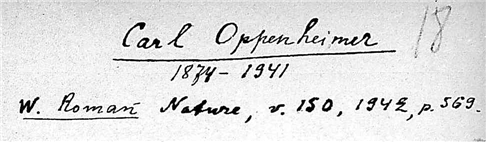 Carl Oppenheimer 18
1874 - 1941
W. Roman Nature, v. 150, 1942, p. 569.